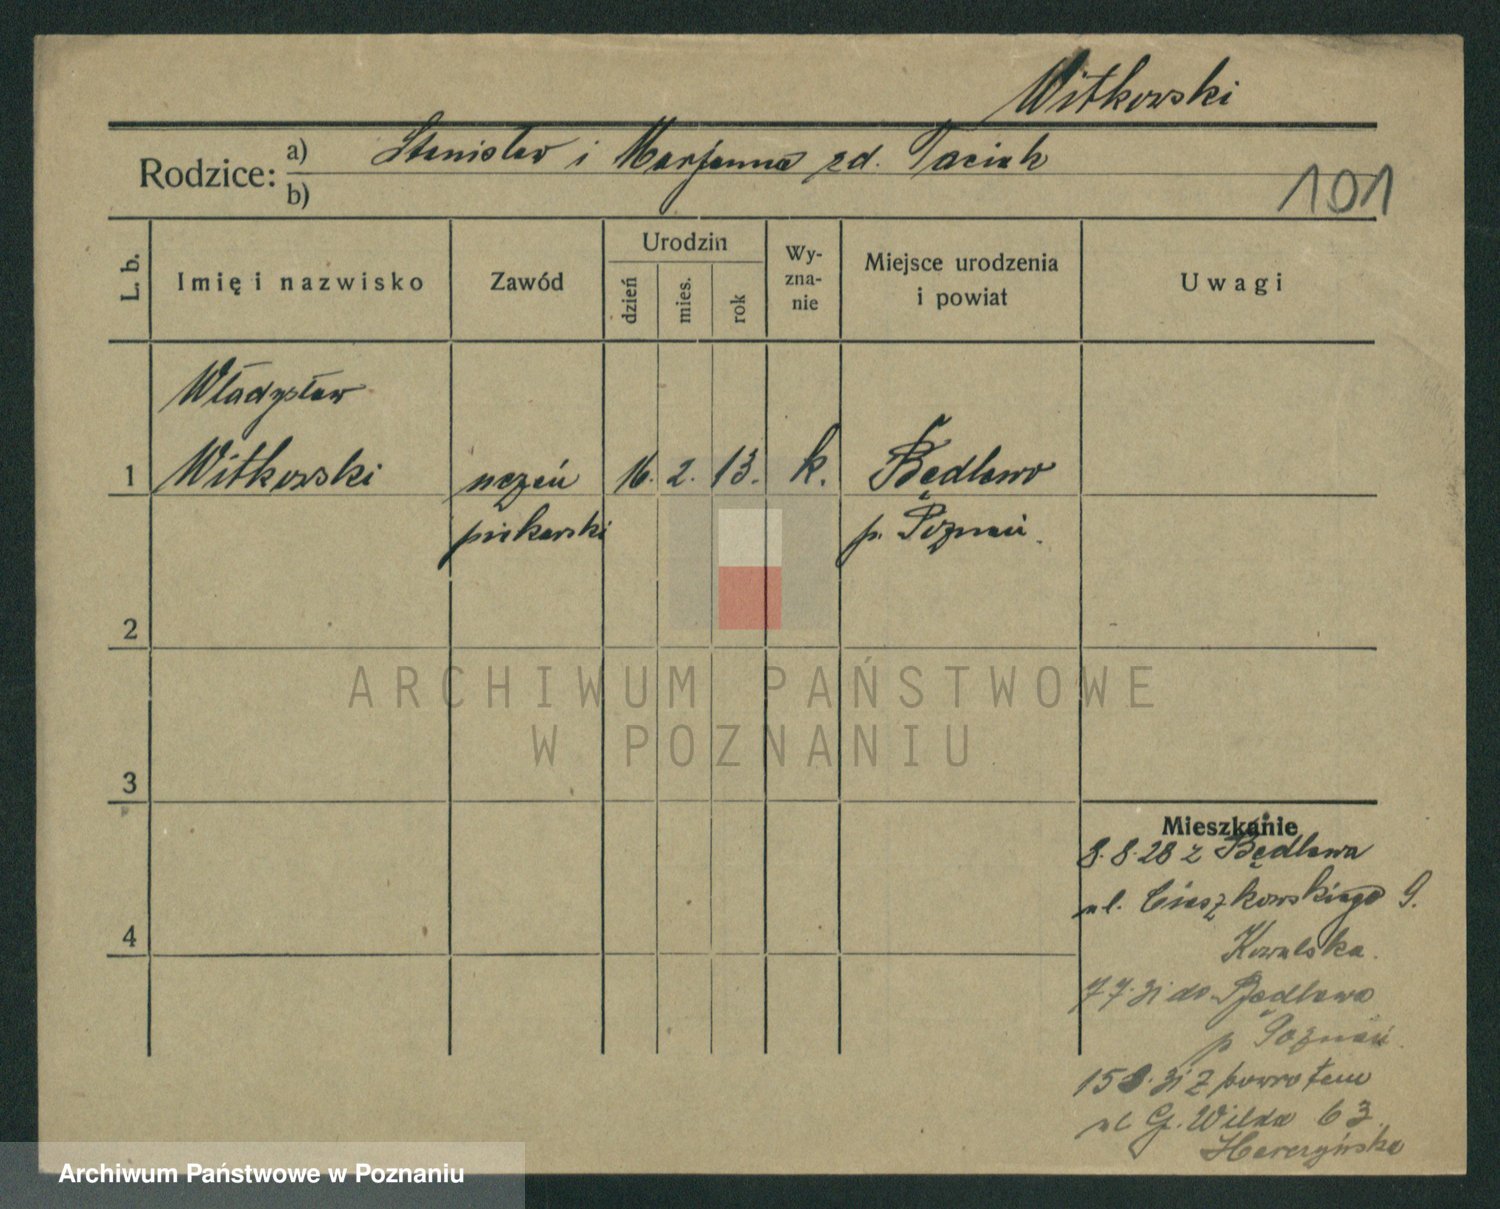 Witkowski
Rodzice: a) Stanisław i Marjanna zd. Taciak
b)
101
L. b.
Imię i nazwisko
Zawód
Urodzin
dzień
mies.
rok
Wy-
zna-
nie
Miejsce urodzenia
i powiat
Uwagi
Władysław
1 Witkowski uczeń 16. 2. 13. k. Będlewo
piekarski p. Poznań.
2
ARCHIWUM PAŃSTWOWE
W POZNANIU
3
Mieszkanie
8.8.28 z Będlewa
ul. Cieszkowskiego 9.
Kowalska.
4
7.7.31 do Będlewo
p Poznań.
15 8. 31 z powrotem
ul G. Wilda 63.
Archiwum Państwowe w Poznaniu